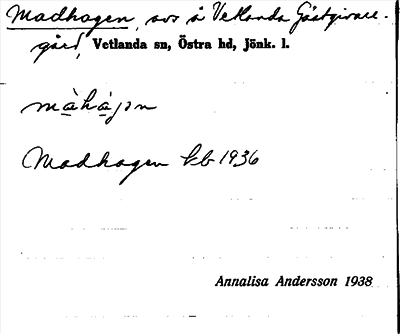 Madhagen, avs å Vetlanda Gästgivare-
gård, Vetlanda sn, Östra hd, Jönk. l.
màhàgən
Madhagen kb 1936
Annalisa Andersson 1938